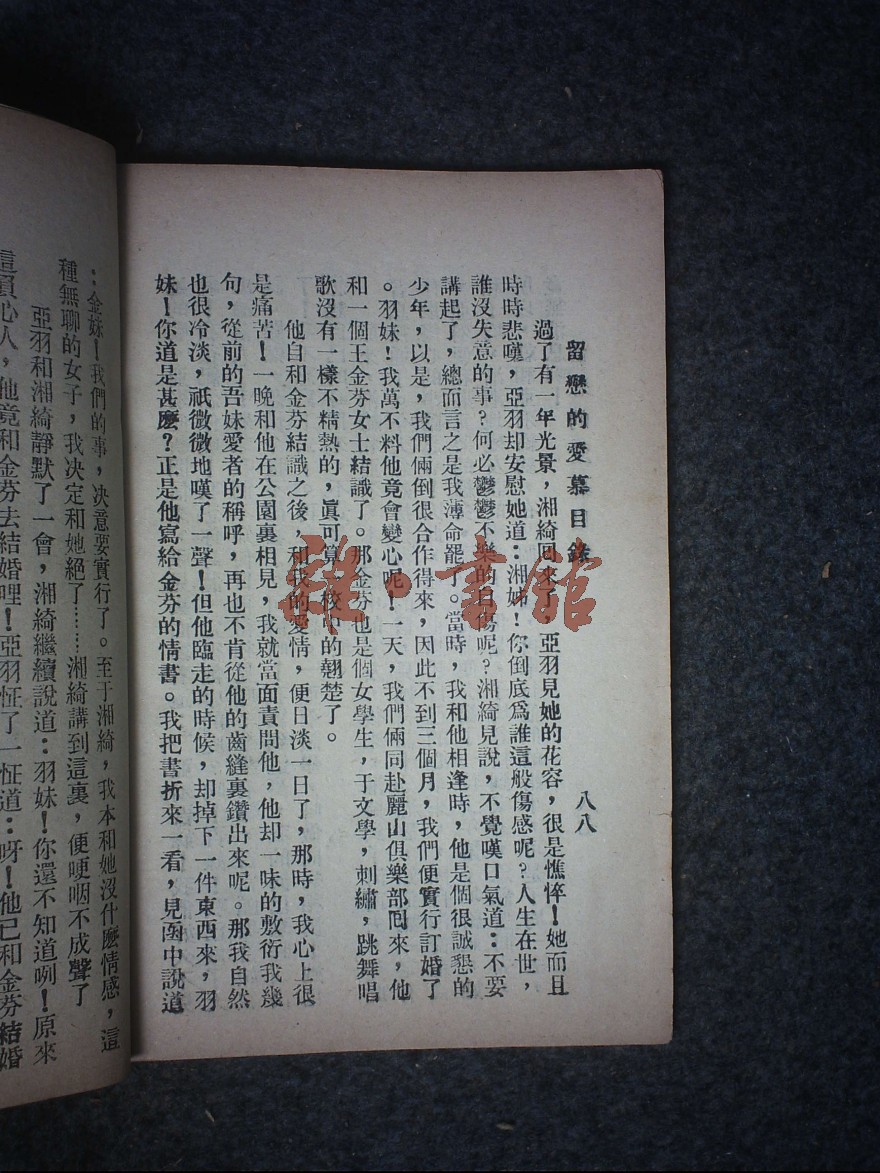 留戀的愛慕目錄
八八
過了有一年光景，湘綺回來了，亞羽見她的花容，很是憔悴！她而且
時時悲嘆，亞羽却安慰她道：湘姊！你倒底為誰這般傷感呢？人生在世，
誰沒失意的事？何必鬱鬱不樂的自傷呢？湘綺見說，不覺嘆口氣道：不要
講起了，總而言之是我薄命罷了。當時，我和他相逢時，他是個很誠懇的
少年，以是，我們倆倒很合作得來，因此不到三個月，我們便實行訂婚了
。羽妹！我萬不料他竟會變心呢！一天，我們倆同赴麗山俱樂部回來，他
和一個王金芬女士結識了。那金芬也是個女學生，于文學，刺繡，跳舞唱
歌沒有一樣不精熟的，眞可算校中的翹楚了。
他自和金芬結識之後，和我的愛情，便日淡一日了，那時，我心上很
是痛苦！一晚和他在公園裏相見，我就當面責問他，他却一味的敷衍我幾
句，從前的吾妹愛者的稱呼，再也不肯從他的齒縫裏鑽出來呢。那我自然
也很冷淡，祇微微地嘆了一聲！但他臨走的時候，却掉下一件東西來，羽
妹！你道是甚麽？正是他寫給金芬的情書。我把書折來一看，見函中說道
：金妹！我們的事，决意要實行了。至于湘綺，我本和她沒什麽情感，這
種無聊的女子，我决定和她絕了……湘綺講到這裏，便哽咽不成聲了
亞羽和湘綺靜默了一會，湘綺繼續說道：羽妹！你還不知道咧！原來
這負心人，他竟和金芬去結婚哩！亞羽怔了一怔道：呀！他已和金芬結婚
雜·書館